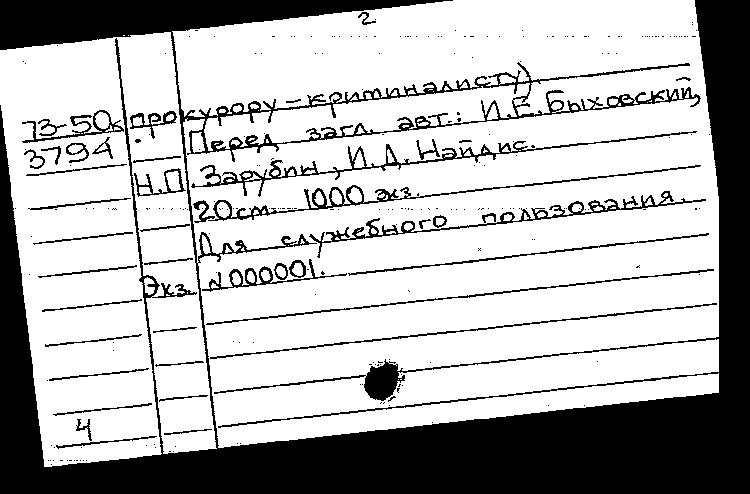 2
73-50к прокурору-криминалисту).
3794 Перед загл. авт.: И.Е.Быховский,
Н.П.Зарубин, И.Д.Найдис.
20см. 1000 экз.
Для служебного пользования.
Экз. N000001.
4